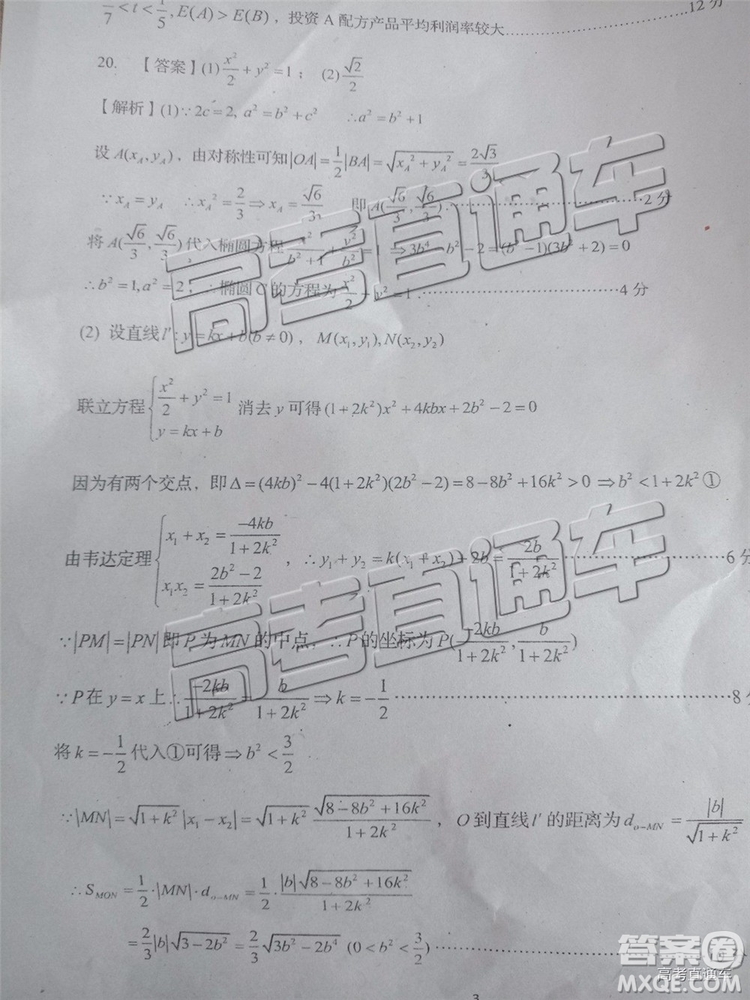 /7 < t < 1/5, E(A) > E(B)，投资 A 配方产品平均利润率较大……………12 分
20. 【答案】(1) x²/2 + y² = 1； (2) √2/2
【解析】(1)∵2c = 2, a² = b² + c² ∴a² = b² + 1
设 A(x_A, y_A)，由对称性可知|OA| = 1/2|BA| = √(x_A² + y_A²) = 2√3/3
∵x_A = y_A ∴x_A² = 2/3 ⇒ x_A = √6/3， 即 A(√6/3, √6/3)……………2 分
将 A(√6/3, √6/3)代入椭圆方程 x²/(b²+1) + y²/b² = 1 ⇒ 3b⁴ − b² − 2 = (b² − 1)(3b² + 2) = 0
∴b² = 1, a² = 2，∴椭圆 C 的方程为 x²/2 + y² = 1……………4 分
(2) 设直线 l′: y = kx + b(b ≠ 0)，M(x₁, y₁), N(x₂, y₂)
联立方程{x²/2 + y² = 1, y = kx + b 消去 y 可得 (1 + 2k²)x² + 4kbx + 2b² − 2 = 0
因为有两个交点，即 Δ = (4kb)² − 4(1 + 2k²)(2b² − 2) = 8 − 8b² + 16k² > 0 ⇒ b² < 1 + 2k² ①
由韦达定理{x₁ + x₂ = −4kb/(1 + 2k²), x₁x₂ = (2b² − 2)/(1 + 2k²)，∴y₁ + y₂ = k(x₁ + x₂) + 2b = 2b/(1 + 2k²)……………6 分
∵|PM| = |PN|即 P 为 MN 的中点，∴P 的坐标为 P(−2kb/(1 + 2k²), b/(1 + 2k²))
∵P 在 y = x 上∴−2kb/(1 + 2k²) = b/(1 + 2k²) ⇒ k = −1/2……………8 分
将 k = −1/2 代入①可得 ⇒ b² < 3/2
∵|MN| = √(1 + k²)|x₁ − x₂| = √(1 + k²) √(8 − 8b² + 16k²)/(1 + 2k²)，O 到直线 l′ 的距离为 d_{o−MN} = |b|/√(1 + k²)
∴S_{MON} = 1/2·|MN|·d_{o−MN} = 1/2·|b|√(8 − 8b² + 16k²)/(1 + 2k²)
= 2/3|b|√(3 − 2b²) = 2/3√(3b² − 2b⁴) (0 < b² < 3/2)……………
3
高考直通车
高考直通车
答案圈
高考直通车
MXQE.COM